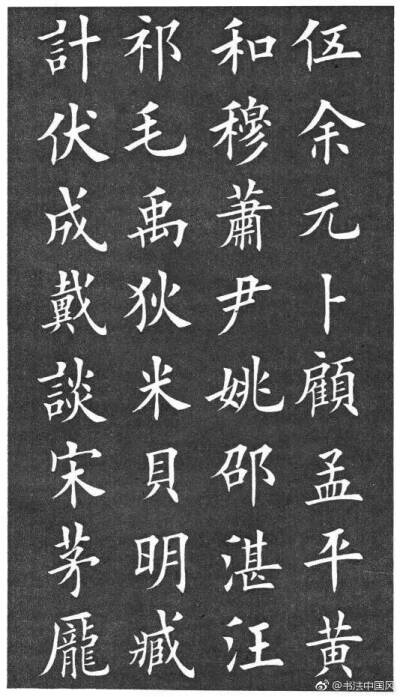 伍余元卜顧孟平黃
和穆蕭尹姚邵湛汪
祁毛禹狄米貝明臧
計伏成戴談宋茅龐
@书法中国风